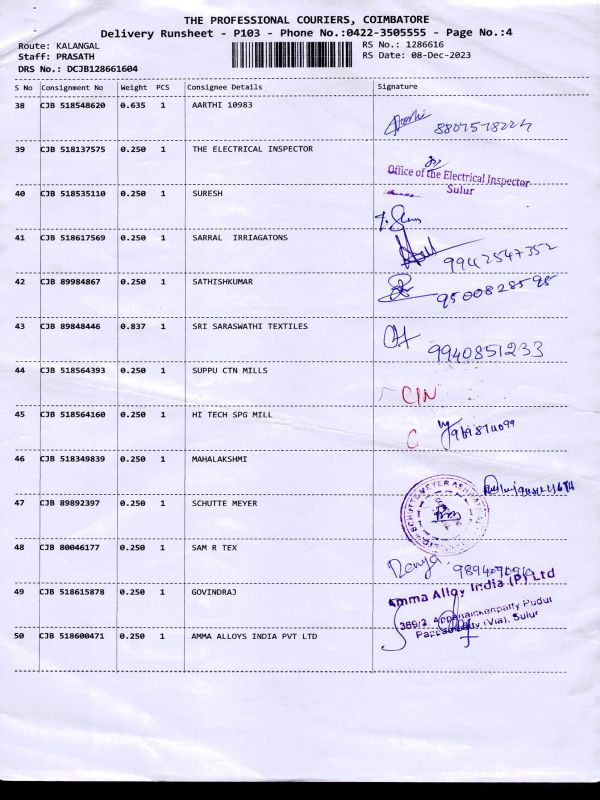 THE PROFESSIONAL COURIERS, COIMBATORE
Delivery Runsheet - P103 - Phone No.:0422-3505555 - Page No.:4
Route: KALANGAL RS No.: 1286616
Staff: PRASATH RS Date: 08-Dec-2023
DRS No.: DCJB128661604
S No Consignment No Weight PCS Consignee Details Signature
38 CJB 518548620 0.635 1 AARTHI 10983
39 CJB 518137575 0.250 1 THE ELECTRICAL INSPECTOR
Office of the Electrical Inspector
Sulur
40 CJB 518535110 0.250 1 SURESH
41 CJB 518617569 0.250 1 SARRAL IRRIAGATONS
9942547352
42 CJB 89984867 0.250 1 SATHISHKUMAR
9500828598
43 CJB 89848446 0.837 1 SRI SARASWATHI TEXTILES
9940851233
44 CJB 518564393 0.250 1 SUPPU CTN MILLS
45 CJB 518564160 0.250 1 HI TECH SPG MILL
46 CJB 518349839 0.250 1 MAHALAKSHMI
47 CJB 89892397 0.250 1 SCHUTTE MEYER
48 CJB 80046177 0.250 1 SAM R TEX
Ramya
49 CJB 518615878 0.250 1 GOVINDRAJ
Amma Alloy India (P) Ltd
Pudur
(Via), Sulur
50 CJB 518600471 0.250 1 AMMA ALLOYS INDIA PVT LTD